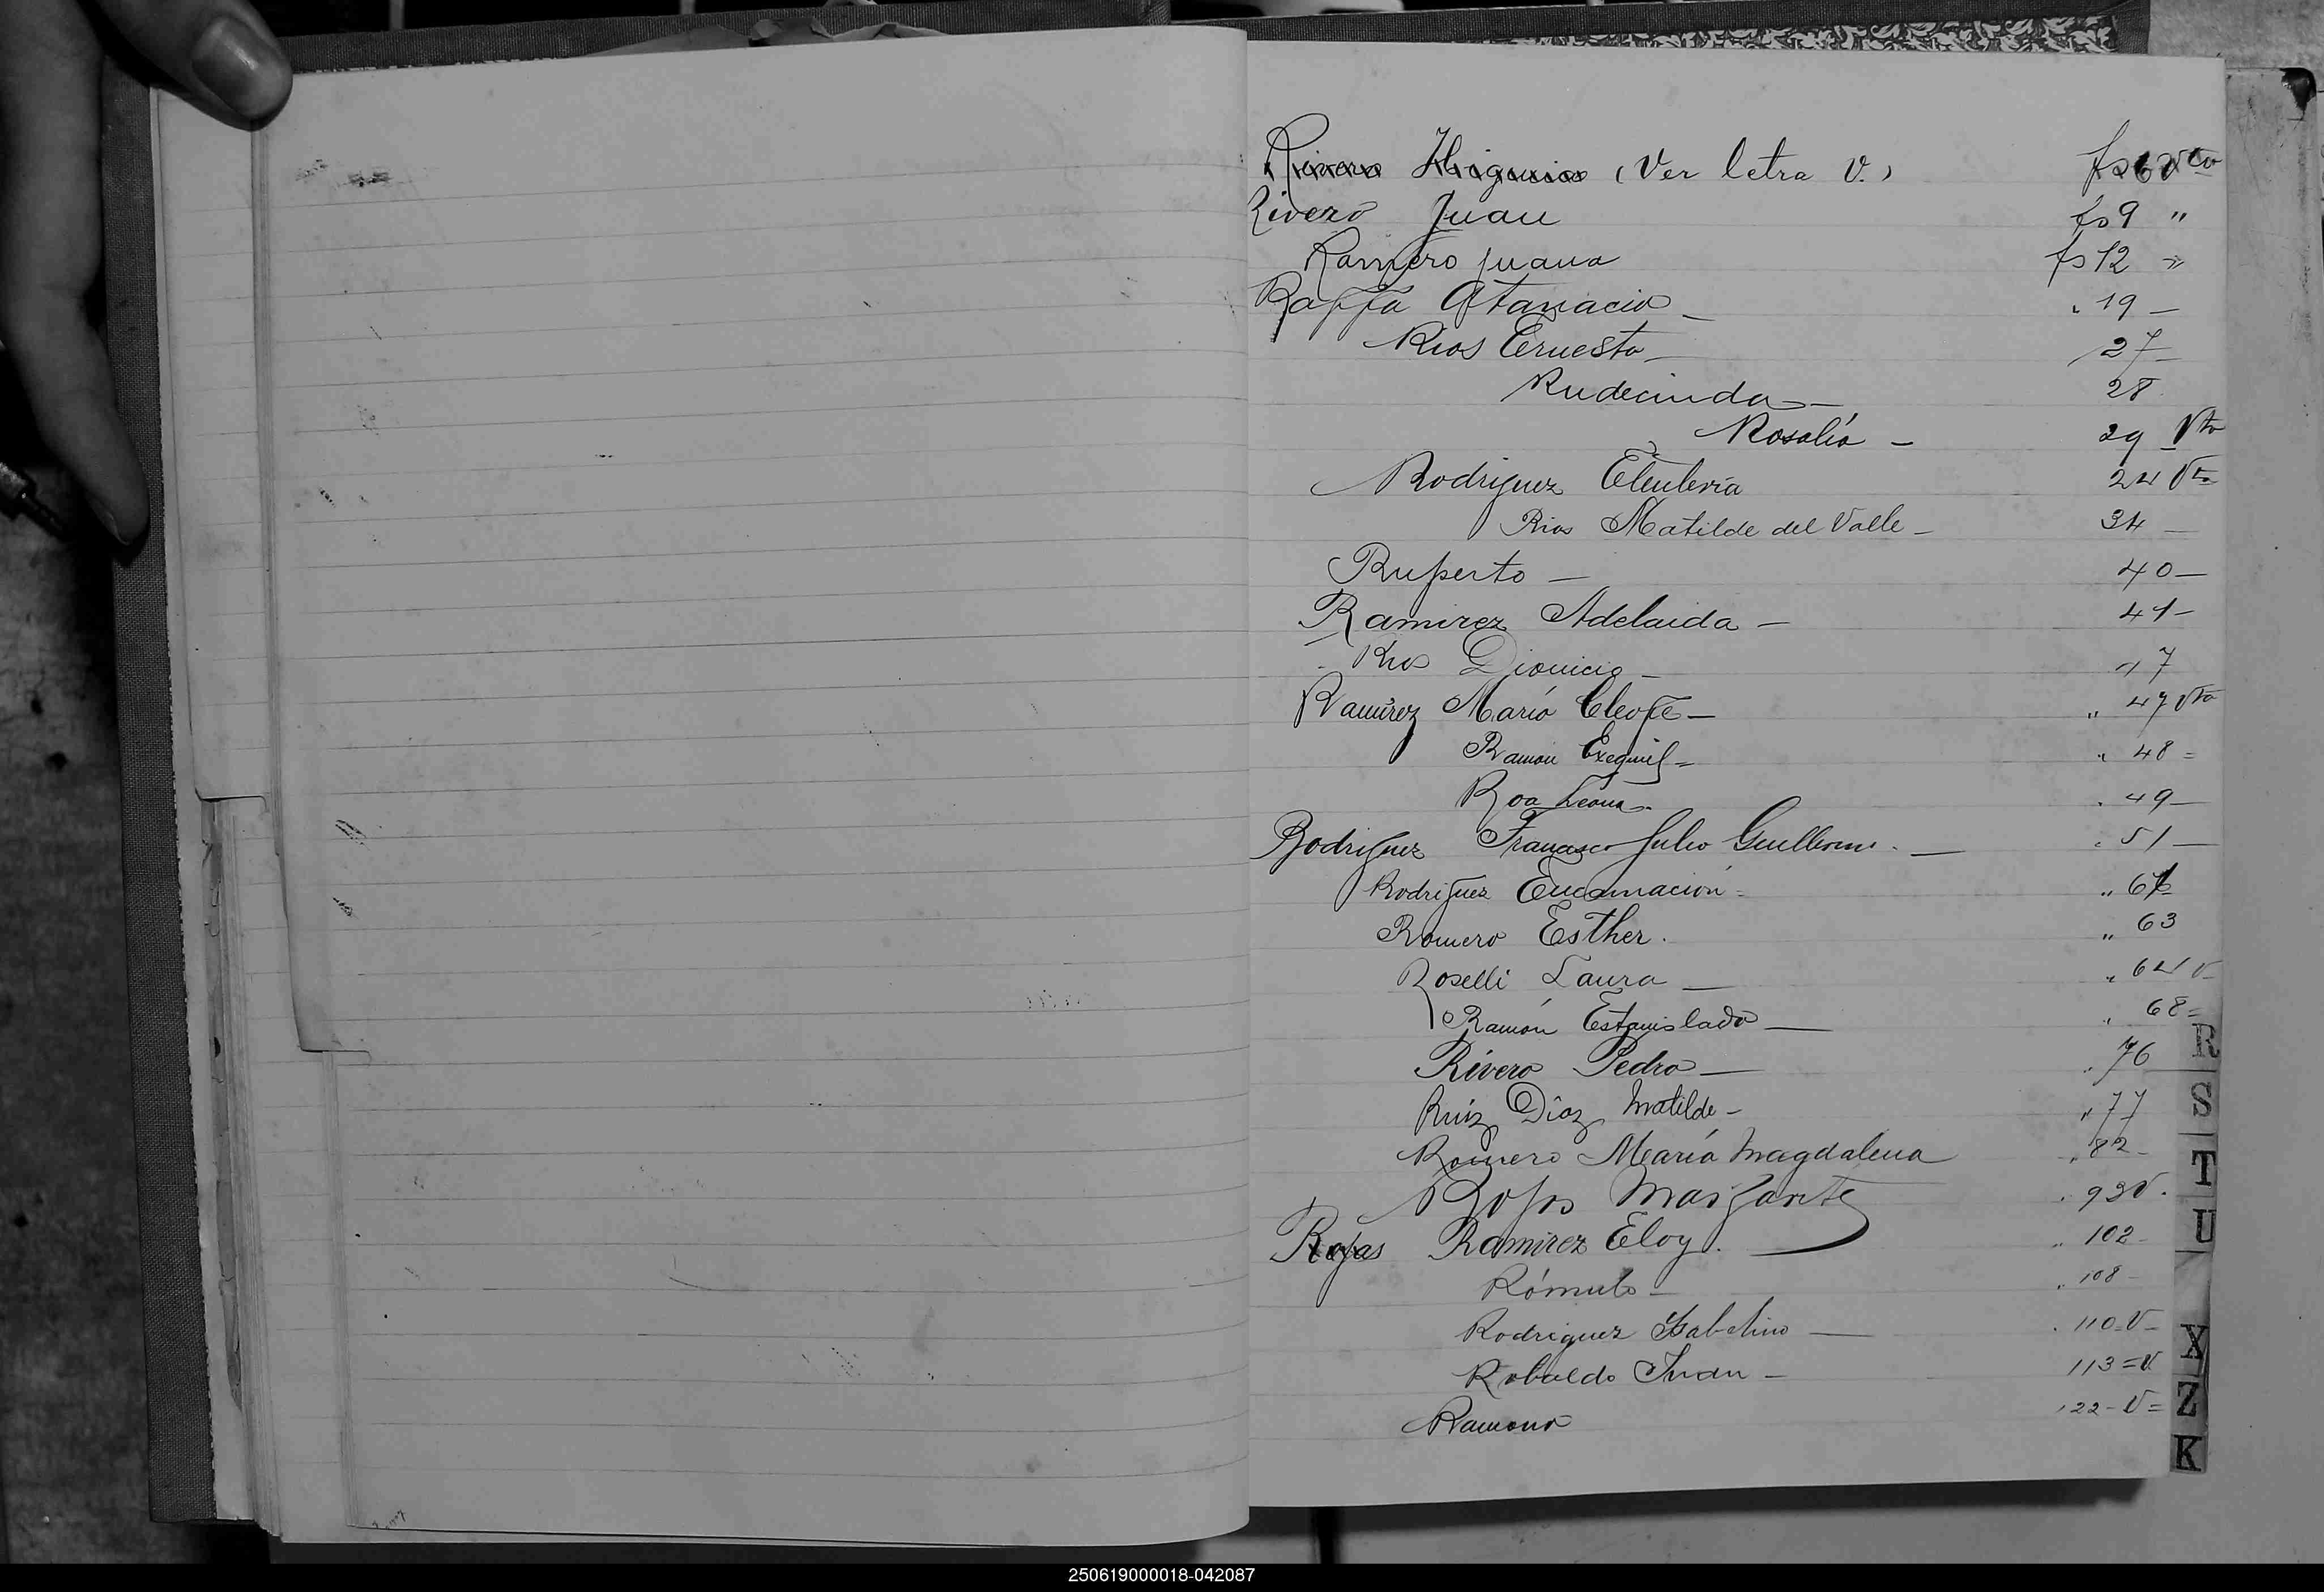 Rivero Higinio (Ver letra V.) fs 6 Vto
Rivero Juan fs 9 "
Romero Juana fs 12 "
Raffa Atanacio - " 19 -
Rios Ernesto - 27 -
Rudecinda - 28
Rosalía - 29 Vto
Rodriguez Eleuteria 24 Vto
Rios Matilde del Valle - 34 -
Ruperto - 40 -
Ramirez Adelaida - 41 -
Rios Dionicio - 17
Ramírez María Cleofe - " 47 Vto
Ramón Exequiel - " 48 =
Roa Leona - " 49 -
Rodriguez Francisco Julio Guillermo. - " 51 -
Rodriguez Encarnación - " 67
Romero Esther. " 63
Roselli Laura - " 64 V -
Ramón Estanislado - " 68 =
Rivero Pedro - " 76
Ruiz Díaz Matilde - " 77
Romero María Magdalena " 82 -
Rojas Margarita " 93 V.
Rojas Ramirez Eloy. - " 102 -
Rómulo - " 108 -
Rodriguez Isabelino - " 110 = V -
Robaldo Juan - 113 = V
Ramona 122 - V =
R
S
T
U
X
Z
K
250619000018-042087